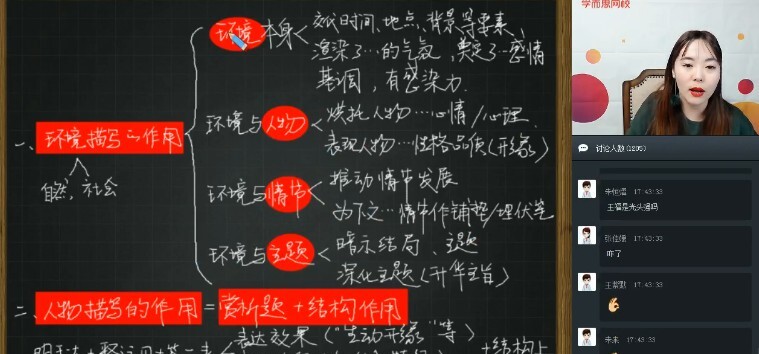 学而思网校
环境本身
交代时间、地点、背景等要素、
渲染了…的气氛，奠定了…感情
基调，有感染力.
一、环境描写的作用
自然，社会
环境与人物
烘托人物…心情/心理.
表现人物…性格品质(形象)
环境与情节
推动情节发展
为下文…情节作铺垫/埋伏笔
环境与主题
暗示结局、主题
深化主题(升华主旨)
二、人物描写的作用=赏析题+结构作用
表达效果("生动形象"等)
+结构上
讨论人数(1205)
17:43:33
王福是光头强吗
17:43:33
咋了
17:43:33
未来 17:43:33